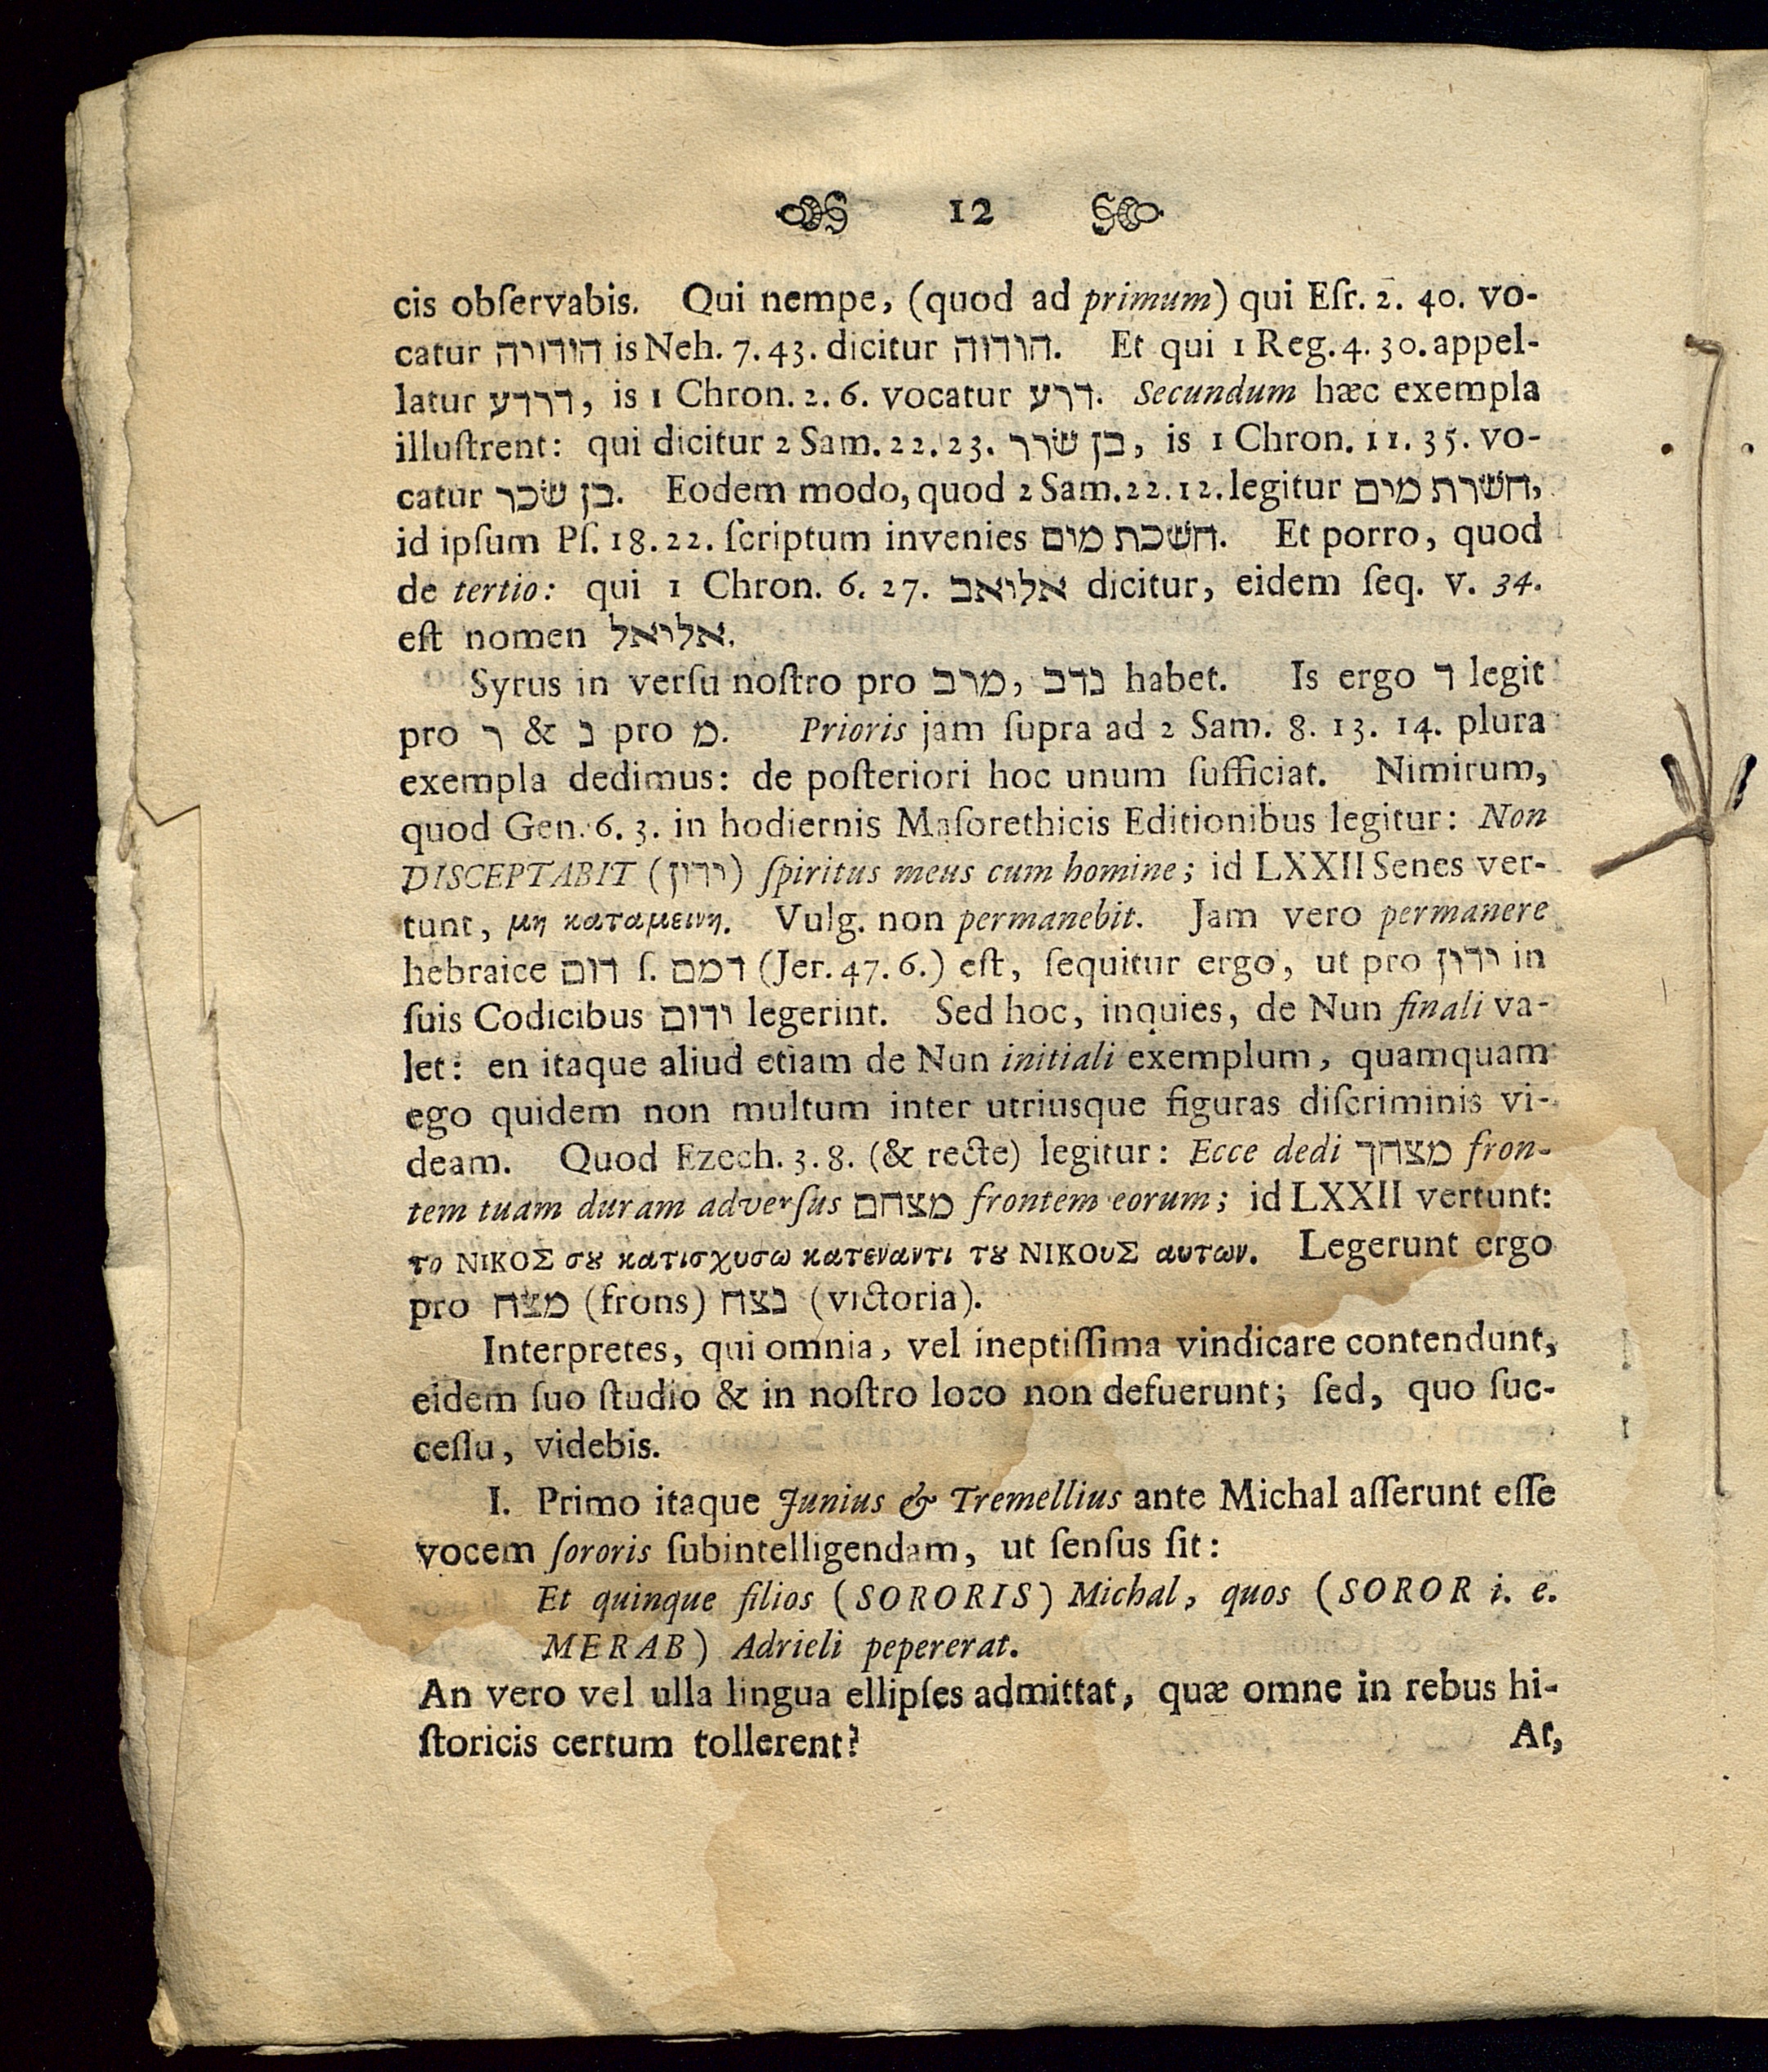 12
cis obſervabis. Qui nempe, (quod ad primum) qui Eſr. 2. 40. vo-
catur הודויה is Neh. 7. 43. dicitur הודוה. Et qui 1 Reg. 4. 30. appel-
latur דרדע, is 1 Chron. 2. 6. vocatur דרע. Secundum hæc exempla
illuſtrent: qui dicitur 2 Sam. 22. 23. בן שׂרר, is 1 Chron. 11. 35. vo-
catur בן שׂכר. Eodem modo, quod 2 Sam. 22. 12. legitur חשׁרת מים,
id ipſum Pſ. 18. 22. ſcriptum invenies חשׁכת מים. Et porro, quod
de tertio: qui 1 Chron. 6. 27. אליאב dicitur, eidem ſeq. v. 34.
eſt nomen אליאל.
Syrus in verſu noſtro pro מרב, נדב habet. Is ergo ד legit
pro ר & נ pro מ. Prioris jam ſupra ad 2 Sam. 8. 13. 14. plura
exempla dedimus: de poſteriori hoc unum ſufficiat. Nimirum,
quod Gen. 6. 3. in hodiernis Maſorethicis Editionibus legitur: Non
DISCEPTABIT (ידון) ſpiritus meus cum homine; id LXXII Senes ver-
tunt, μη καταμεινη. Vulg. non permanebit. Jam vero permanere
hebraice דום ſ. דמם (Jer. 47. 6.) eſt, ſequitur ergo, ut pro ידון in
ſuis Codicibus ידום legerint. Sed hoc, inquies, de Nun finali va-
let: en itaque aliud etiam de Nun initiali exemplum, quamquam
ego quidem non multum inter utriusque figuras diſcriminis vi-
deam. Quod Ezech. 3. 8. (& recte) legitur: Ecce dedi מצחך fron-
tem tuam duram adverſus מצחם frontem eorum; id LXXII vertunt:
το ΝΙΚΟΣ σȣ κατισχυσω κατεναντι τȣ ΝΙΚΟυΣ αυτων. Legerunt ergo
pro מצח (frons) נצח (victoria).
Interpretes, qui omnia, vel ineptiſſima vindicare contendunt,
eidem ſuo ſtudio & in noſtro loco non defuerunt; ſed, quo ſuc-
ceſſu, videbis.
I. Primo itaque Junius & Tremellius ante Michal aſſerunt eſſe
vocem ſororis ſubintelligendam, ut ſenſus ſit:
Et quinque filios (SORORIS) Michal, quos (SOROR i. e.
MERAB) Adrieli pepererat.
An vero vel ulla lingua ellipſes admittat, quæ omne in rebus hi-
ſtoricis certum tollerent?
At,